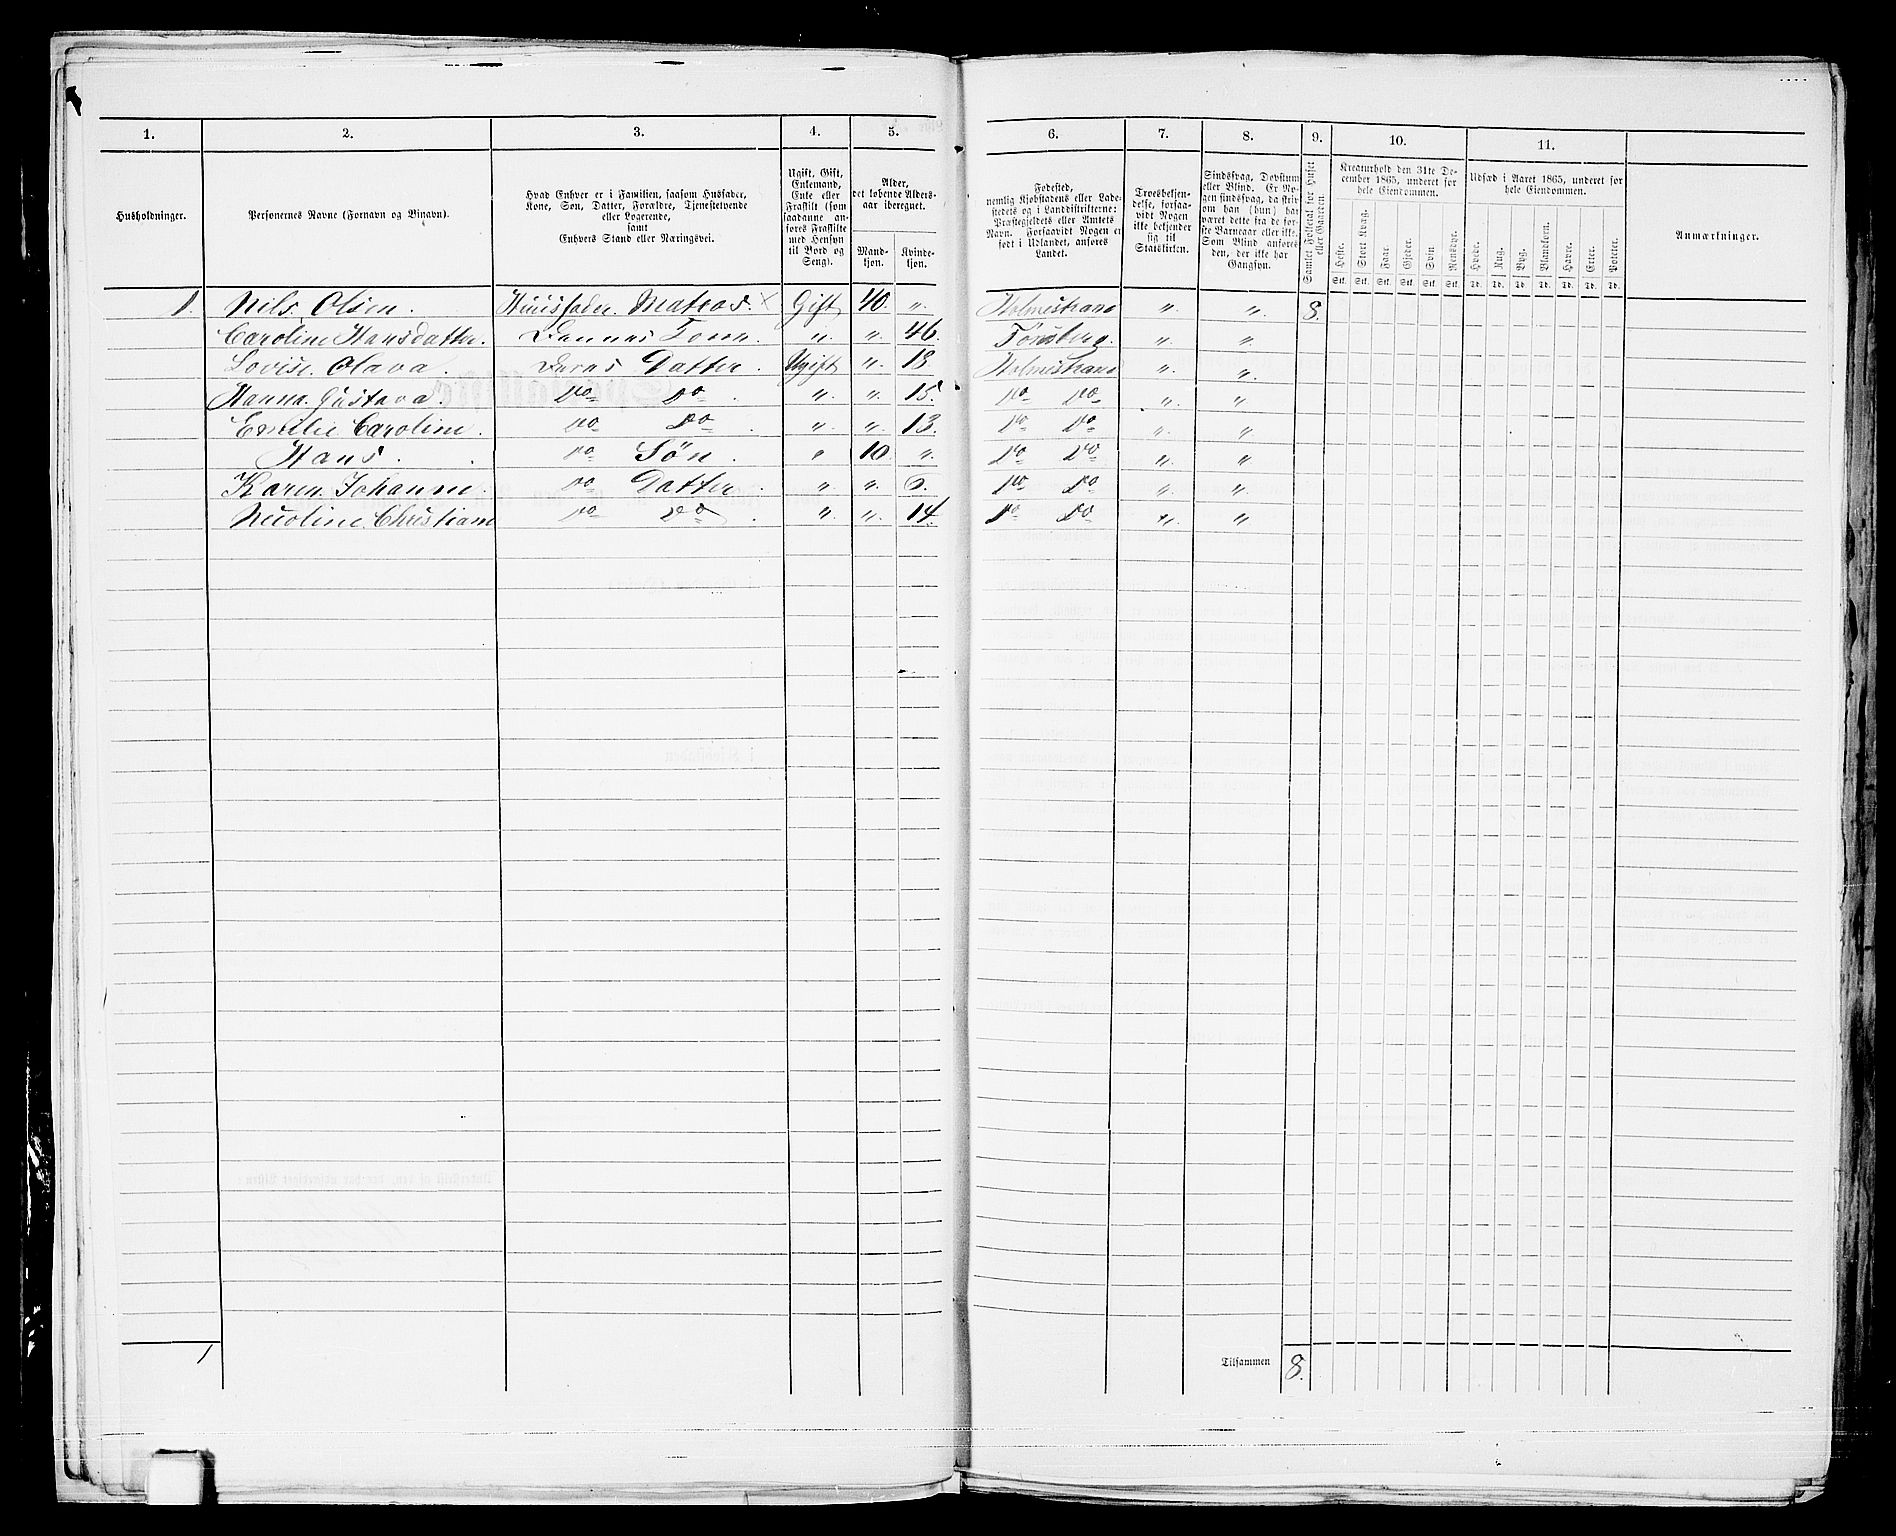 1. 2. 3. 4. 5. 6. 7. 8. 9. 10. 11.
Husholdninger.
Personernes Navne (Fornavn og Binavn).
Hvad Enhver er i Familien, saasom Husfader,
Kone, Søn, Datter, Forældre, Tjenestetyende
eller Logerende,
samt
Enhvers Stand eller Næringsvei.
Ugift, Gift,
Enkemand,
Enke eller
Fraskilt (som
saadanne an-
føres Fraskilte
med Hensyn
til Bord og
Seng).
Alder,
det løbende Alders-
aar iberegnet.
Mand-
kjøn.
Kvinde-
kjøn.
Fødested,
nemlig Kjøbstadens eller Lade-
stedets og i Landdistrikterne:
Præstegjeldets eller Amtets
Navn. Forsaavidt Nogen er
født i Udlandet, anføres
Landet.
Troesbekjen-
delse, forsaa-
vidt Nogen
ikke bekjender
sig til
Statskirken.
Sindssvag, Døvstum
eller Blind. Er No-
gen sindssvag, da skriv
om han (hun) har
været dette fra de før-
ste Barneaar eller ikke.
Som Blind anføres
den, der ikke har
Gangsyn.
Samlet Folketal for Huset
eller Gaarden.
Kreaturhold den 31te De-
cember 1865, underet for
hele Eiendommen.
Heste. Stort Kvæg. Faar. Gjeder. Svin. Rensdyr.
Stk. Stk. Stk. Stk. Stk. Stk.
Udsæd i Aaret 1865, underet for
hele Eiendommen.
Hvede. Rug. Byg. Blandkorn. Havre. Erter. Poteter.
Td. Td. Td. Td. Td. Td. Td.
Anmærkninger.
1. Nils Olsen. Huusfader Matros. × Gift 40. „ Holmestrand „ „ 8.
Caroline Hansdatter. Dennes Kone „ „ 46. Tønsberg. „ „
Lovise Olava. Deres Datter. Ugift „ 18 Holmestrand „ „
Hanna Gustava. Do Do. „ „ 15. Do Do „ „
Emilie Caroline. Do Do. „ „ 13. Do Do „ „
Hans. Do Søn. „ 10 „ Do Do „ „
Karen Johanne. Do Datter. „ „ 6. Do Do „ „
Nicoline Christiane Do Do. „ „ 14. Do Do „ „
1 Tilsammen 8.